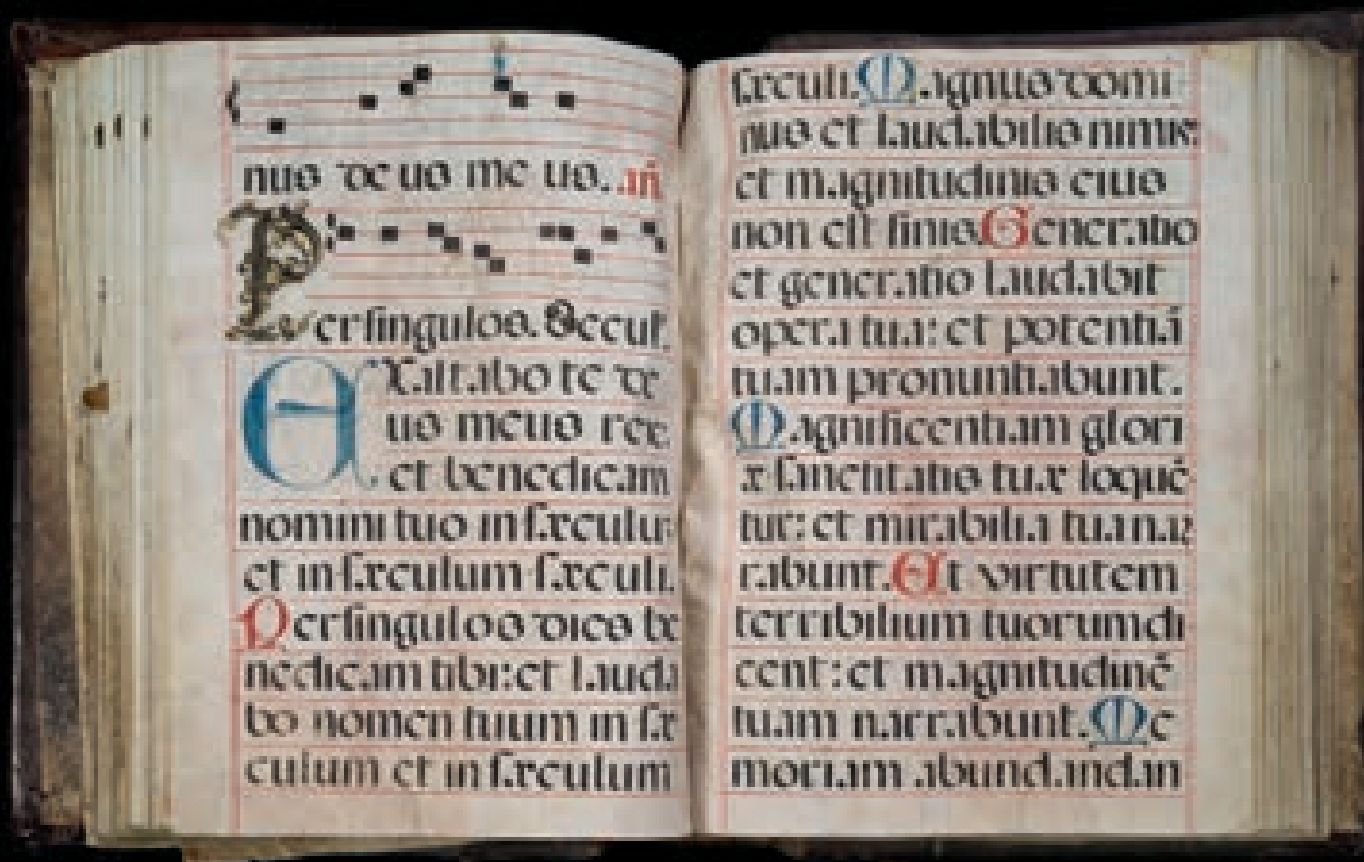 nus deus meus. añ
Per singulos. Seculũ.
EXaltabo te de
us meus rex:
et benedicam
nomini tuo in sæculũ
et in sæculum sæculi.
Per singulos dies be
nedicam tibi: et lauda
bo nomen tuum in sæ
culum et in sæculum
sæculi. Magnus domi
nus et laudabilis nimis:
et magnitudinis eius
non est finis. Generatio
et generatio laudabit
opera tua: et potentiã
tuam pronuntiabunt.
Magnificentiam glori
æ sanctitatis tuæ loquẽ
tur: et mirabilia tua nar
rabunt. Et virtutem
terribilium tuorum di
cent: et magnitudinẽ
tuam narrabunt. Me
moriam abundantian